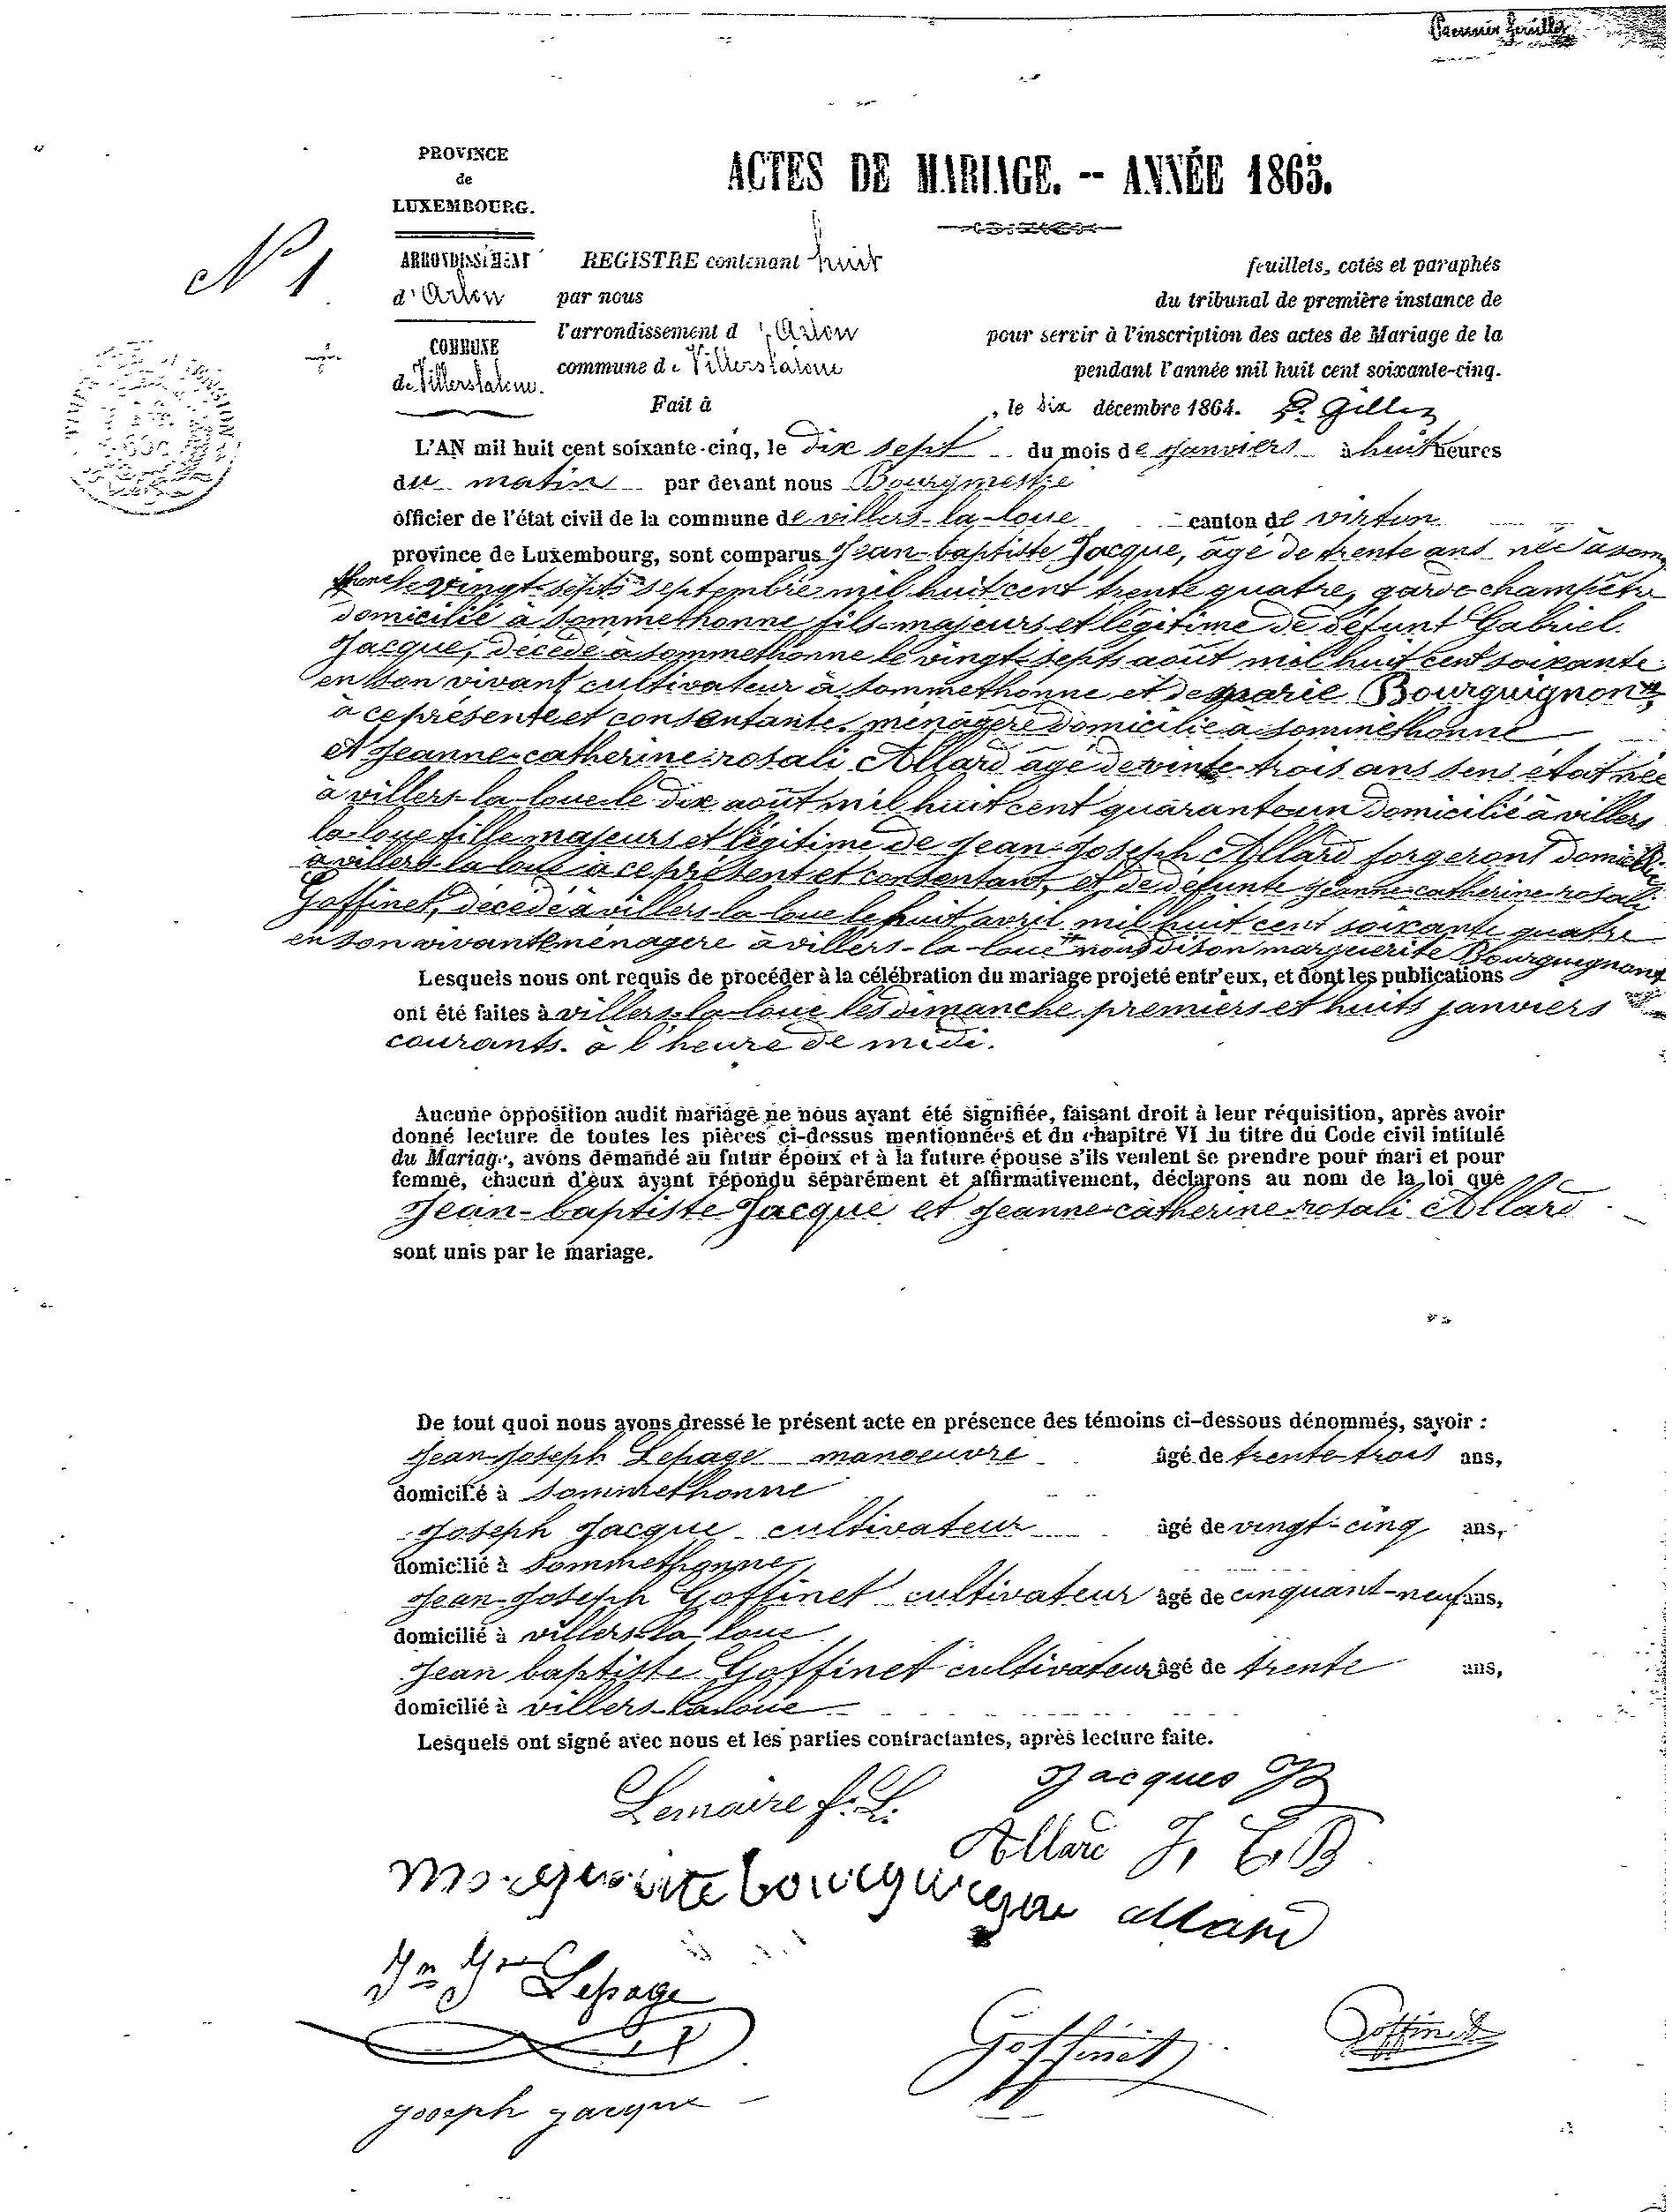 Premier feuillet
PROVINCE
de
LUXEMBOURG.
ACTES DE MARIAGE. -- ANNÉE 1865.
N° 1
ARRONDISSEMENT
d'Arlon
COMMUNE
de Villerslaloue.
REGISTRE contenant huit feuillets, cotés et paraphés
par nous du tribunal de première instance de
l'arrondissement d'Arlon pour servir à l'inscription des actes de Mariage de la
commune de Villerslaloue pendant l'année mil huit cent soixante-cinq.
Fait à , le dix décembre 1864. P. Gillez
L'AN mil huit cent soixante-cinq, le dix sept du mois de janviers à huit heures
du matin par devant nous Bourgmestre
officier de l'état civil de la commune de villers-la-loue canton de virton
province de Luxembourg, sont comparus Jean-baptiste Jacque, âgé de trente ans née à som
thone le vingt-septs septembre mil huit cent trente quatre, garde champêtre
domicilié à sommethonne fils majeurs et légitime de défunt Gabriel
Jacque, décédé à sommethonne le vingt-septs août mil huit cent soixante
en son vivant cultivateur à sommethonne et de marie Bourguignont
à ce présente et consentante. ménagère domicilié a sommethonne
et Jeanne-catherine-rosali Allard âgé de vinte-trois ans sens état née
à villers-la-loue le dix août mil huit cent quarante un domicilié à villers
la-loue fille majeurs et légitime de Jean-Joseph Allard forgeront domicilié
à villers-la-loue à ce présent et consentant, et de défunte Jeanne-catherine-rosali
Goffinet, décédé à villers-la-loue le huit avril mil huit cent soixante quatre
en son vivant ménagère à villers-la-loue nous dison marguerite Bourguignont
Lesquels nous ont requis de procéder à la célébration du mariage projeté entr'eux, et dont les publications
ont été faites à villers-la-loue les dimanche premiers et huits janviers
courants. à l'heure de midi.
Aucune opposition audit mariage ne nous ayant été signifiée, faisant droit à leur réquisition, après avoir
donné lecture de toutes les pièces ci-dessus mentionnées et du chapitre VI du titre du Code civil intitulé
du Mariage, avons demandé au futur époux et à la future épouse s'ils veulent se prendre pour mari et pour
femme, chacun d'eux ayant répondu séparément et affirmativement, déclarons au nom de la loi que
Jean-baptiste Jacque et Jeanne-catherine-rosali Allard
sont unis par le mariage.
De tout quoi nous avons dressé le présent acte en présence des témoins ci-dessous dénommés, savoir :
Jean-Joseph Lepage manoeuvre âgé de trente-trois ans,
domicilié à sommethonne
Joseph Jacque cultivateur âgé de vingt-cinq ans,
domicilié à sommethonne
Jean-Joseph Goffinet cultivateur âgé de cinquant-neuf ans,
domicilié à villers-la-loue
Jean baptiste Goffinet cultivateur âgé de trente ans,
domicilié à villers-laloue
Lesquels ont signé avec nous et les parties contractantes, après lecture faite.
Jacques JB
Lemaire f. L.
Allard J. C. B
Marguerite bourguignon allard
Jn Jph Lepage
Goffinet Goffinet
joseph jacque